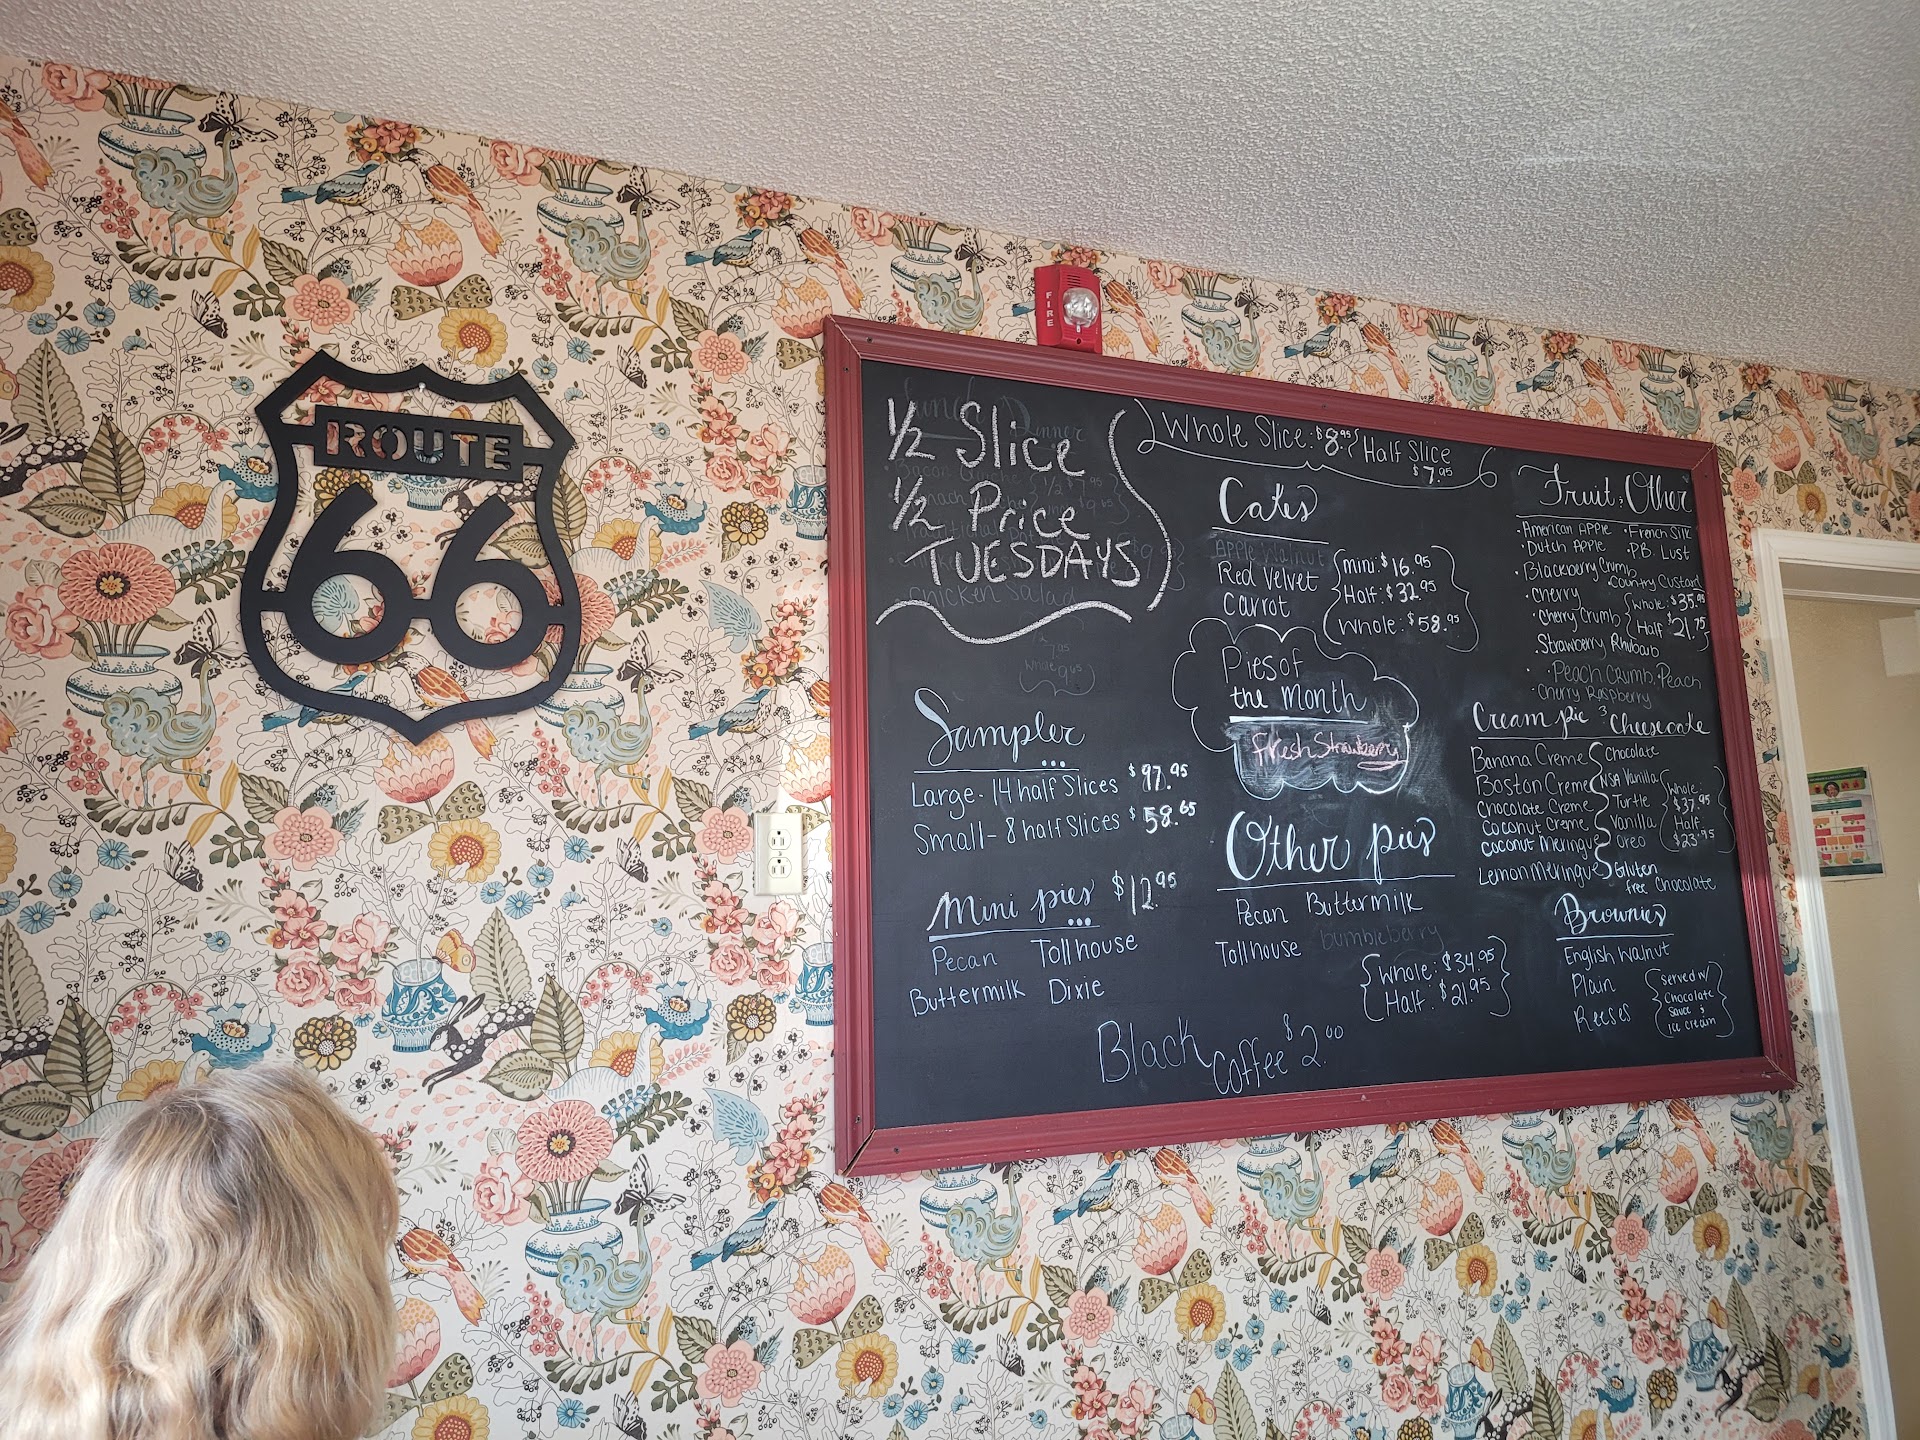 ROUTE
66
FIRE
1/2 Slice
1/2 Price
TUESDAYS
Whole Slice: $8.95 Half Slice
$7.95
Cakes
Apple Walnut
Red Velvet
Carrot
mini: $16.95
Half: $32.95
whole: $58.95
Pies of
the month
Fresh Strawberry
Fruit & Other
• American Apple • French Silk
• Dutch Apple • P.B. Lust
• Blackberry Crumb
• Country Custard
• Cherry
• Cherry Crumb
whole: $35.95
Half $21.75
• Strawberry Rhubarb
• Peach Crumb, Peach
• Cherry Raspberry
Sampler
...
Large - 14 half Slices $97.95
Small - 8 half Slices $58.65
Mini pies $12.95
...
Pecan Tollhouse
Buttermilk Dixie
Other pies
Pecan Buttermilk
Tollhouse bumbleberry
Whole: $34.95
Half: $21.95
Cream pie & Cheesecake
Banana Creme
Boston Creme
Chocolate Creme
Coconut Creme
Coconut Meringue
Lemon Meringue
Chocolate
NSA Vanilla
Turtle
Vanilla
Oreo
Gluten
free Chocolate
Whole:
$37.95
Half
$23.95
Brownies
English Walnut
Plain
Reeses
served w/
Chocolate
sauce &
ice cream
Black
coffee $2.00
Chicken Salad